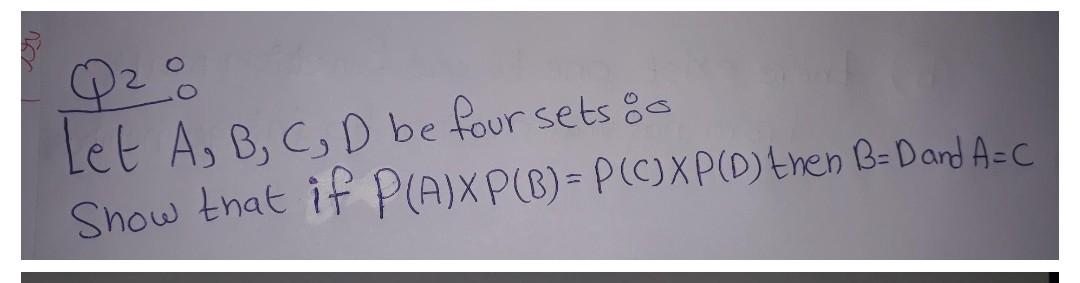 Q2:
Let A, B, C, D be four sets :-
Show that if P(A)XP(B)=P(C)XP(D) then B=D and A=C